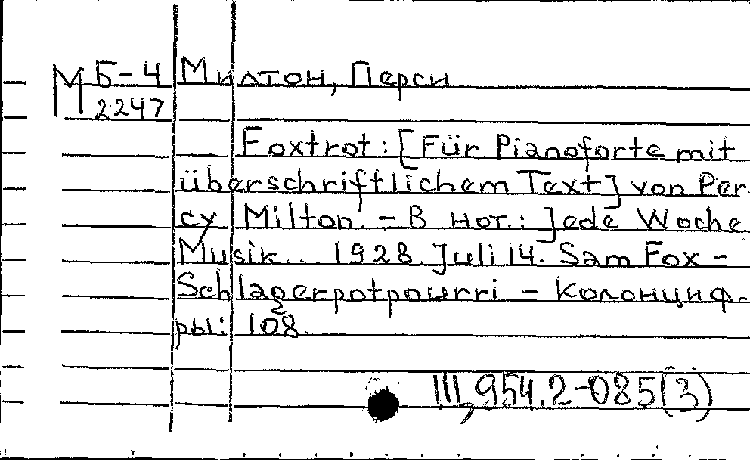 М Б-4 Милтон, Перси
2247
Foxtrot: [Für Pianoforte mit
überschriftlichem Text] von Per-
cy Milton. - В нот.: Jede Woche
Musik... 1928. Juli 14. Sam Fox -
Schlagerpotpourri - колонциф-
ры: 108.
III,954.2-085(3)